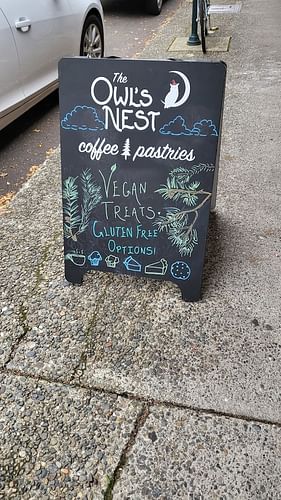 The
OWL'S
NEST
coffee pastries
VEGAN
TREATS.
GLUTEN FREE
OPTIONS!